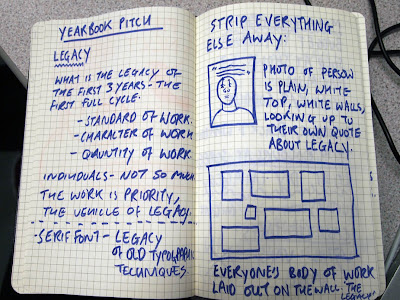 YEARBOOK PITCH
LEGACY
WHAT IS THE LEGACY OF
THE FIRST 3 YEARS - THE
FIRST FULL CYCLE:
- STANDARD OF WORK.
- CHARACTER OF WORK
- QUANTITY OF WORK
INDIVIDUALS - NOT SO MUCH
THE WORK IS PRIORITY,
THE VEHICLE OF LEGACY.
- SERIF FONT - LEGACY
OF OLD TYPOGRAPHIC
TECHNIQUES
STRIP EVERYTHING
ELSE AWAY:
PHOTO OF PERSON
IS PLAIN, WHITE
TOP, WHITE WALLS,
LOOKING UP TO
THEIR OWN QUOTE
ABOUT LEGACY.
EVERYONE'S BODY OF WORK
LAID OUT ON THE WALL. THE
LEGACY